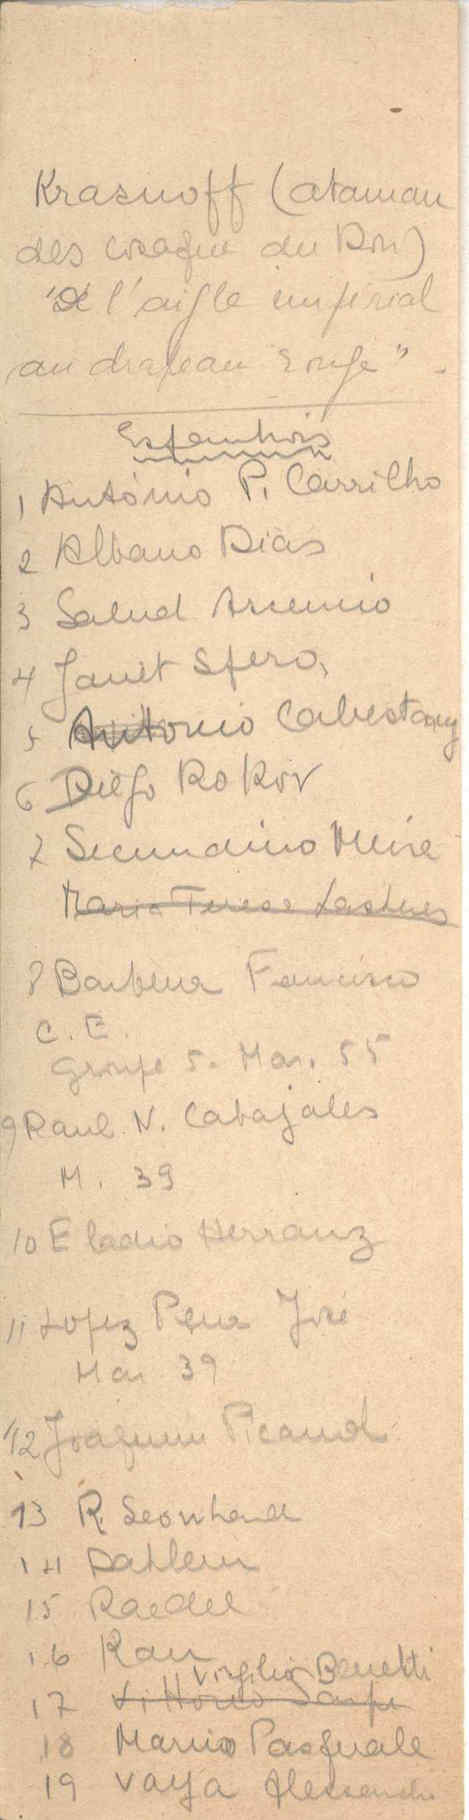 Krasnoff (ataman
des cosaques du Don)
"De l'aigle impérial
au drapeau rouge".
1 António P. Carrilho
2 Albano Dias
3 Salud Arsenio
4 Janet Sfero,
5 Antonio Cabestany
6 Diego Rokov
7 Secundino
Maria Teresa
8 Barbena Francisco
C. E.
groupe 5. Mar. 55
9 Raul N. Cabajales
M. 39
10 Eladio Herranz
11 Lopez Pena José
Mar 39
12 Joaquim Picaud
13 R. Leonhard
14 Dahlem
15 Raedel
16 Rau
Virgilio Benetti
17 Vittorio
18 Mario Pasquale
19 Vaya Alessandro